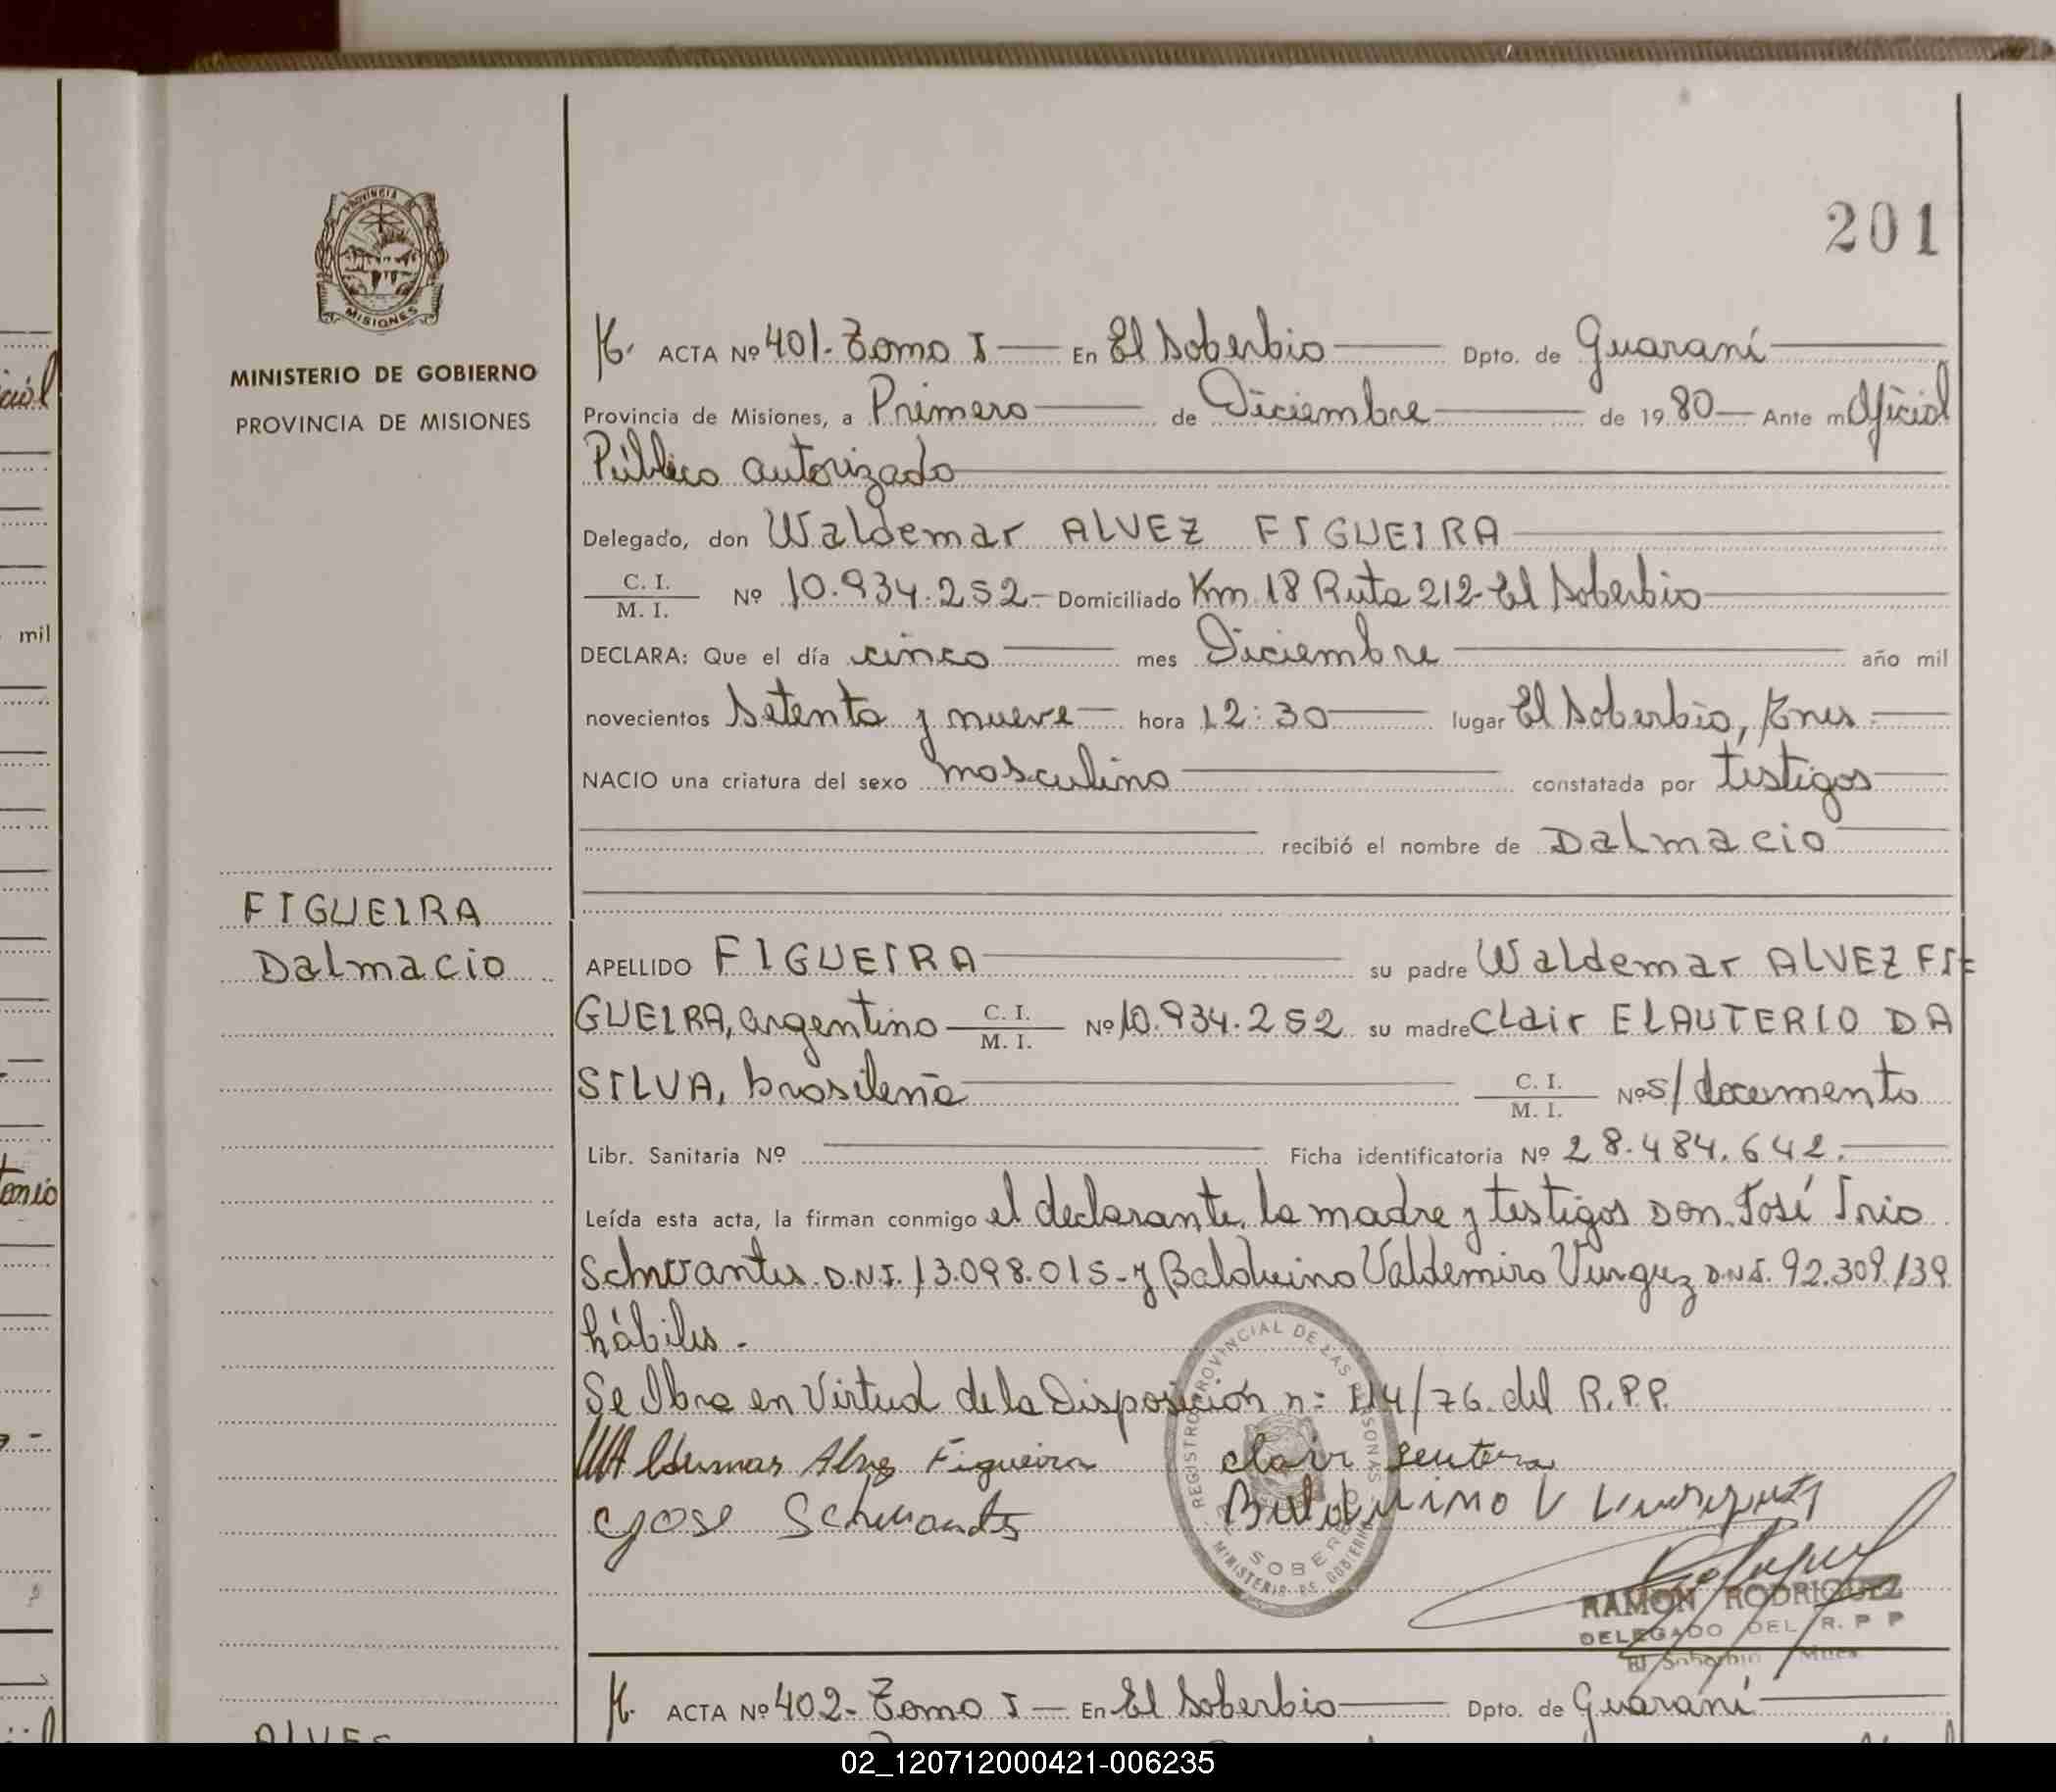 PROVINCIA DE
MISIONES
MINISTERIO DE GOBIERNO
PROVINCIA DE MISIONES
201
ACTA Nº 401-Tomo I En El Soberbio Dpto. de Guaraní
Provincia de Misiones, a Primero de Diciembre de 1980 Ante m Oficial
Público autorizado
Delegado, don Waldemar ALVEZ FIGUEIRA
C. I.
M. I. Nº 10.934.252- Domiciliado Km 18 Ruta 212-El Soberbio
DECLARA: Que el día cinco mes Diciembre año mil
novecientos Setenta y nueve hora 12:30 lugar El Soberbio,
NACIO una criatura del sexo masculino constatada por testigos
recibió el nombre de Dalmacio
FIGUEIRA
Dalmacio
APELLIDO FIGUEIRA su padre Waldemar ALVEZ FI=
GUEIRA, argentino C. I. M. I. Nº 10.934.252 su madre Clair ELAUTERIO DA
SILVA, brasileña C. I. M. I. Nº S/documento
Libr. Sanitaria Nº Ficha identificatoria Nº 28.484.642.
Leída esta acta, la firman conmigo el declarante, la madre y testigos Don José Irio
Schwantes D.N.I. 13.098.015- y Balduino Valdemiro D.N.I. 92.309.139
hábiles.
Se Labra en Virtud de la Disposición nº 114/76. del R.P.P.
Waldemar Alvez Figueira Clair
José Schwantes Balduino V
REGISTRO PROVINCIAL DE LAS PERSONAS
SOBERBIO
MINISTERIO DE GOBIERNO
RAMON RODRIGUEZ
DELEGADO DEL R. P P
El Soberbio Mnes
ACTA Nº 402-Tomo I En El Soberbio Dpto. de Guaraní
ALVES
mil
02_120712000421-006235